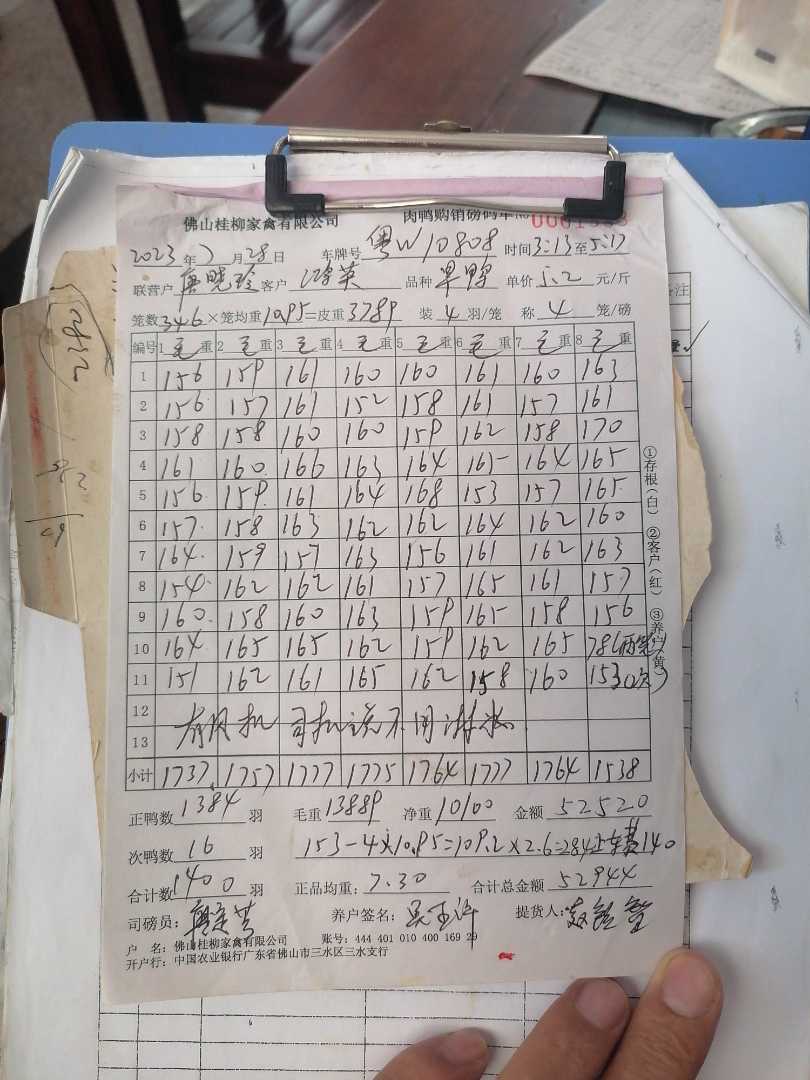 佛山桂柳家禽有限公司 肉鸭购销磅码单
2023年7月28日 车牌号 粤W10808 时间3:13至5:17
联营户 唐晓玲 客户 鸿英 品种 旱鸭 单价 5.2 元/斤
笼数346×笼均重10.95=皮重3789 装4羽/笼 称4笼/磅
编号 1毛重 2毛重 3毛重 4毛重 5毛重 6毛重 7毛重 8毛重
1 156 159 161 160 160 161 160 163
2 156 157 161 152 158 161 157 161
3 158 158 160 160 159 162 158 170
4 161 160 166 163 164 165 164 165
5 156 159 161 164 168 153 157 165
6 157 158 163 162 162 164 162 160
7 164 159 157 163 156 161 162 163
8 154 162 162 161 157 165 161 157
9 160 158 160 163 159 165 158 156
10 164 165 165 162 159 162 165 78(两笼)
11 151 162 161 165 162 158 160 153(次)
12 有风机 司机说不用淋水
13
小计 1737 1757 1777 1775 1764 1777 1764 1538
正鸭数 1384 羽 毛重 13889 净重 10100 金额 52520
次鸭数 16 羽 153-4×10.95=109.2×2.6=284 车费140
合计数 1400 羽 正品均重: 7.30 合计总金额 52944
司磅员: 养户签名: 提货人:
户 名: 佛山桂柳家禽有限公司 账号: 444 401 010 400 169 29
开户行: 中国农业银行广东省佛山市三水区三水支行
①存根(白) ②客户(红) ③养户(黄)
备注